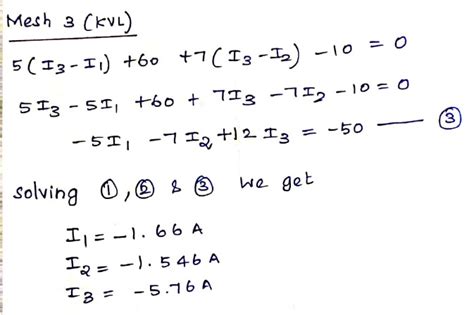 Mesh 3 (KVL)
5(I₃-I₁) +60 +7(I₃-I₂) -10 = 0
5I₃ - 5I₁ +60 + 7I₃ -7I₂ -10 = 0
-5I₁ -7I₂ +12I₃ = -50 — ③
solving ①, ② & ③ we get
I₁ = -1.66A
I₂ = -1.546A
I₃ = -5.76A